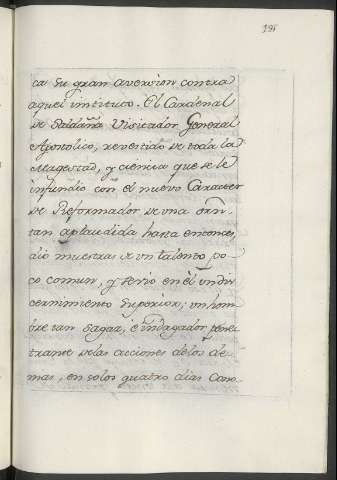 191
ca su gran aversion contra
aquel instituto. El Cardenal
de Saldaña Visitador General
Apostolico, revestido de toda la
Magestad, y ciencia que se le
infundio con el nuevo Caracter
de Reformador de una orn
tan aplaudida hasta entonces,
dio muestras de un talento po-
co comun, y se vio en èl un dis-
cernimiento Superior; un hom-
bre tan Sagaz, è indagador pene-
trante delas acciones delos de-
mas, en solos quatro dias Cono-